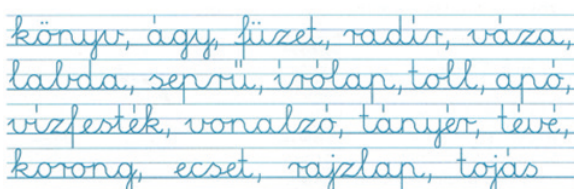 könyv, ágy, füzet, radír, váza,
labda, seprű, írólap, toll, apó,
vízfesték, vonalzó, tányér, tévé,
korong, ecset, rajzlap, tojás